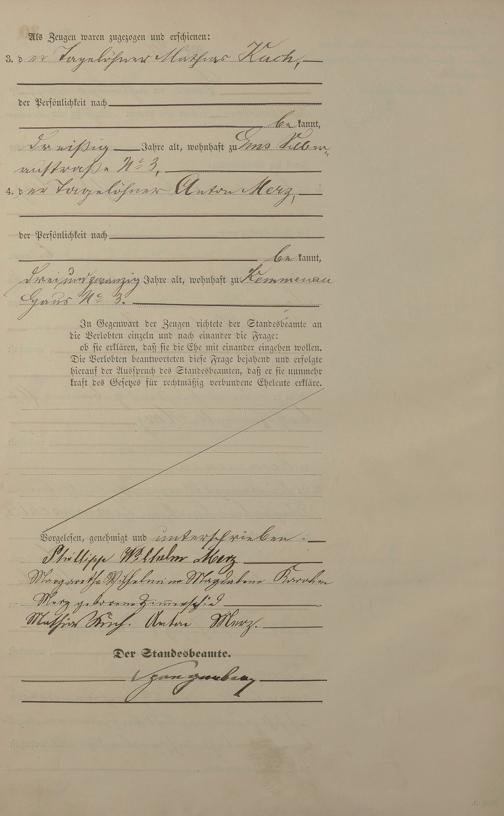 Als Zeugen waren zugezogen und erschienen:
3. der Tagelöhner Mathias Kuch,
der Persönlichkeit nach
bekannt,
dreißig Jahre alt, wohnhaft zu Ems Silber-
austraße No 3,
4. der Tagelöhner Anton Merz,
der Persönlichkeit nach
bekannt,
dreiundzwanzig Jahre alt, wohnhaft zu Kemmenau
Haus No 3.
In Gegenwart der Zeugen richtete der Standesbeamte an
die Verlobten einzeln und nach einander die Frage:
ob sie erklären, daß sie die Ehe mit einander eingehen wollen.
Die Verlobten beantworteten diese Frage bejahend und erfolgte
hierauf der Ausspruch des Standesbeamten, daß er sie nunmehr
kraft des Gesetzes für rechtmäßig verbundene Eheleute erkläre.
Vorgelesen, genehmigt und unterschrieben:
Phillipp Wilhelm Merz
Margaretha Wilhelmine Magdalena Karoline
Merz geborene Zimmerschied
Mathias Kuch. Anton Merz.
Der Standesbeamte.
Spangenberg